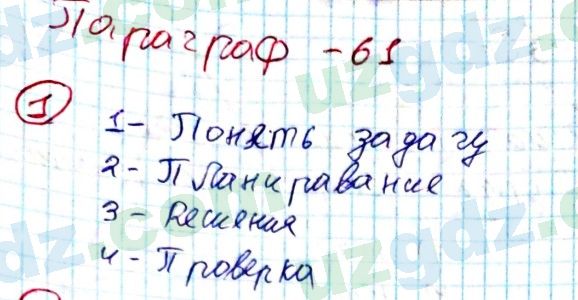 Параграф - 61
1
1- Понять задачу
2- Планиравание
3- Решения
4- Проверка